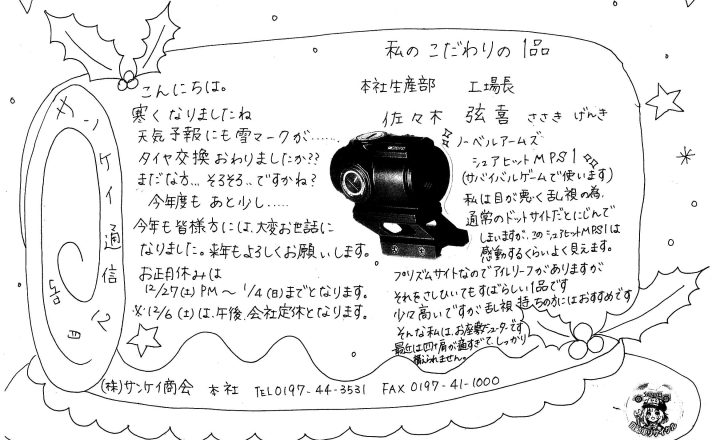 サンケイ通信 12月号
こんにちは。
寒くなりましたね
天気予報にも雪マークが……
タイヤ交換おわりましたか??
まだな方… そろそろ…ですかね?
今年度も あと少し……
今年も皆様方には、大変お世話に
なりました。来年もよろしくお願いします。
お正月休みは
12/27(土)PM〜 1/4(日)までとなります。
※12/6(土)は、午後、会社定休となります。
私の こだわりの 1品
本社生産部 工場長
佐々木 弦喜 ささき げんき
ノーベルアームズ
シュアヒット MPS1
(サバイバルゲームで使います)
私は目が悪く乱視の為、
通常のドットサイトだとにじんで
しまいますが、このシュアヒットMPS1は
感動するくらいよく見えます。
プリズムサイトなのでアイレリーフがありますが
それをさしひいてもすばらしい1品です
少々高いですが乱視持ちの方にはおすすめです
そんな私は、お座敷シューターです
最近は四十肩が痛すぎて、しっかり
構えられません。
(株)サンケイ商会 本社 TEL0197-44-3531 FAX 0197-41-1000